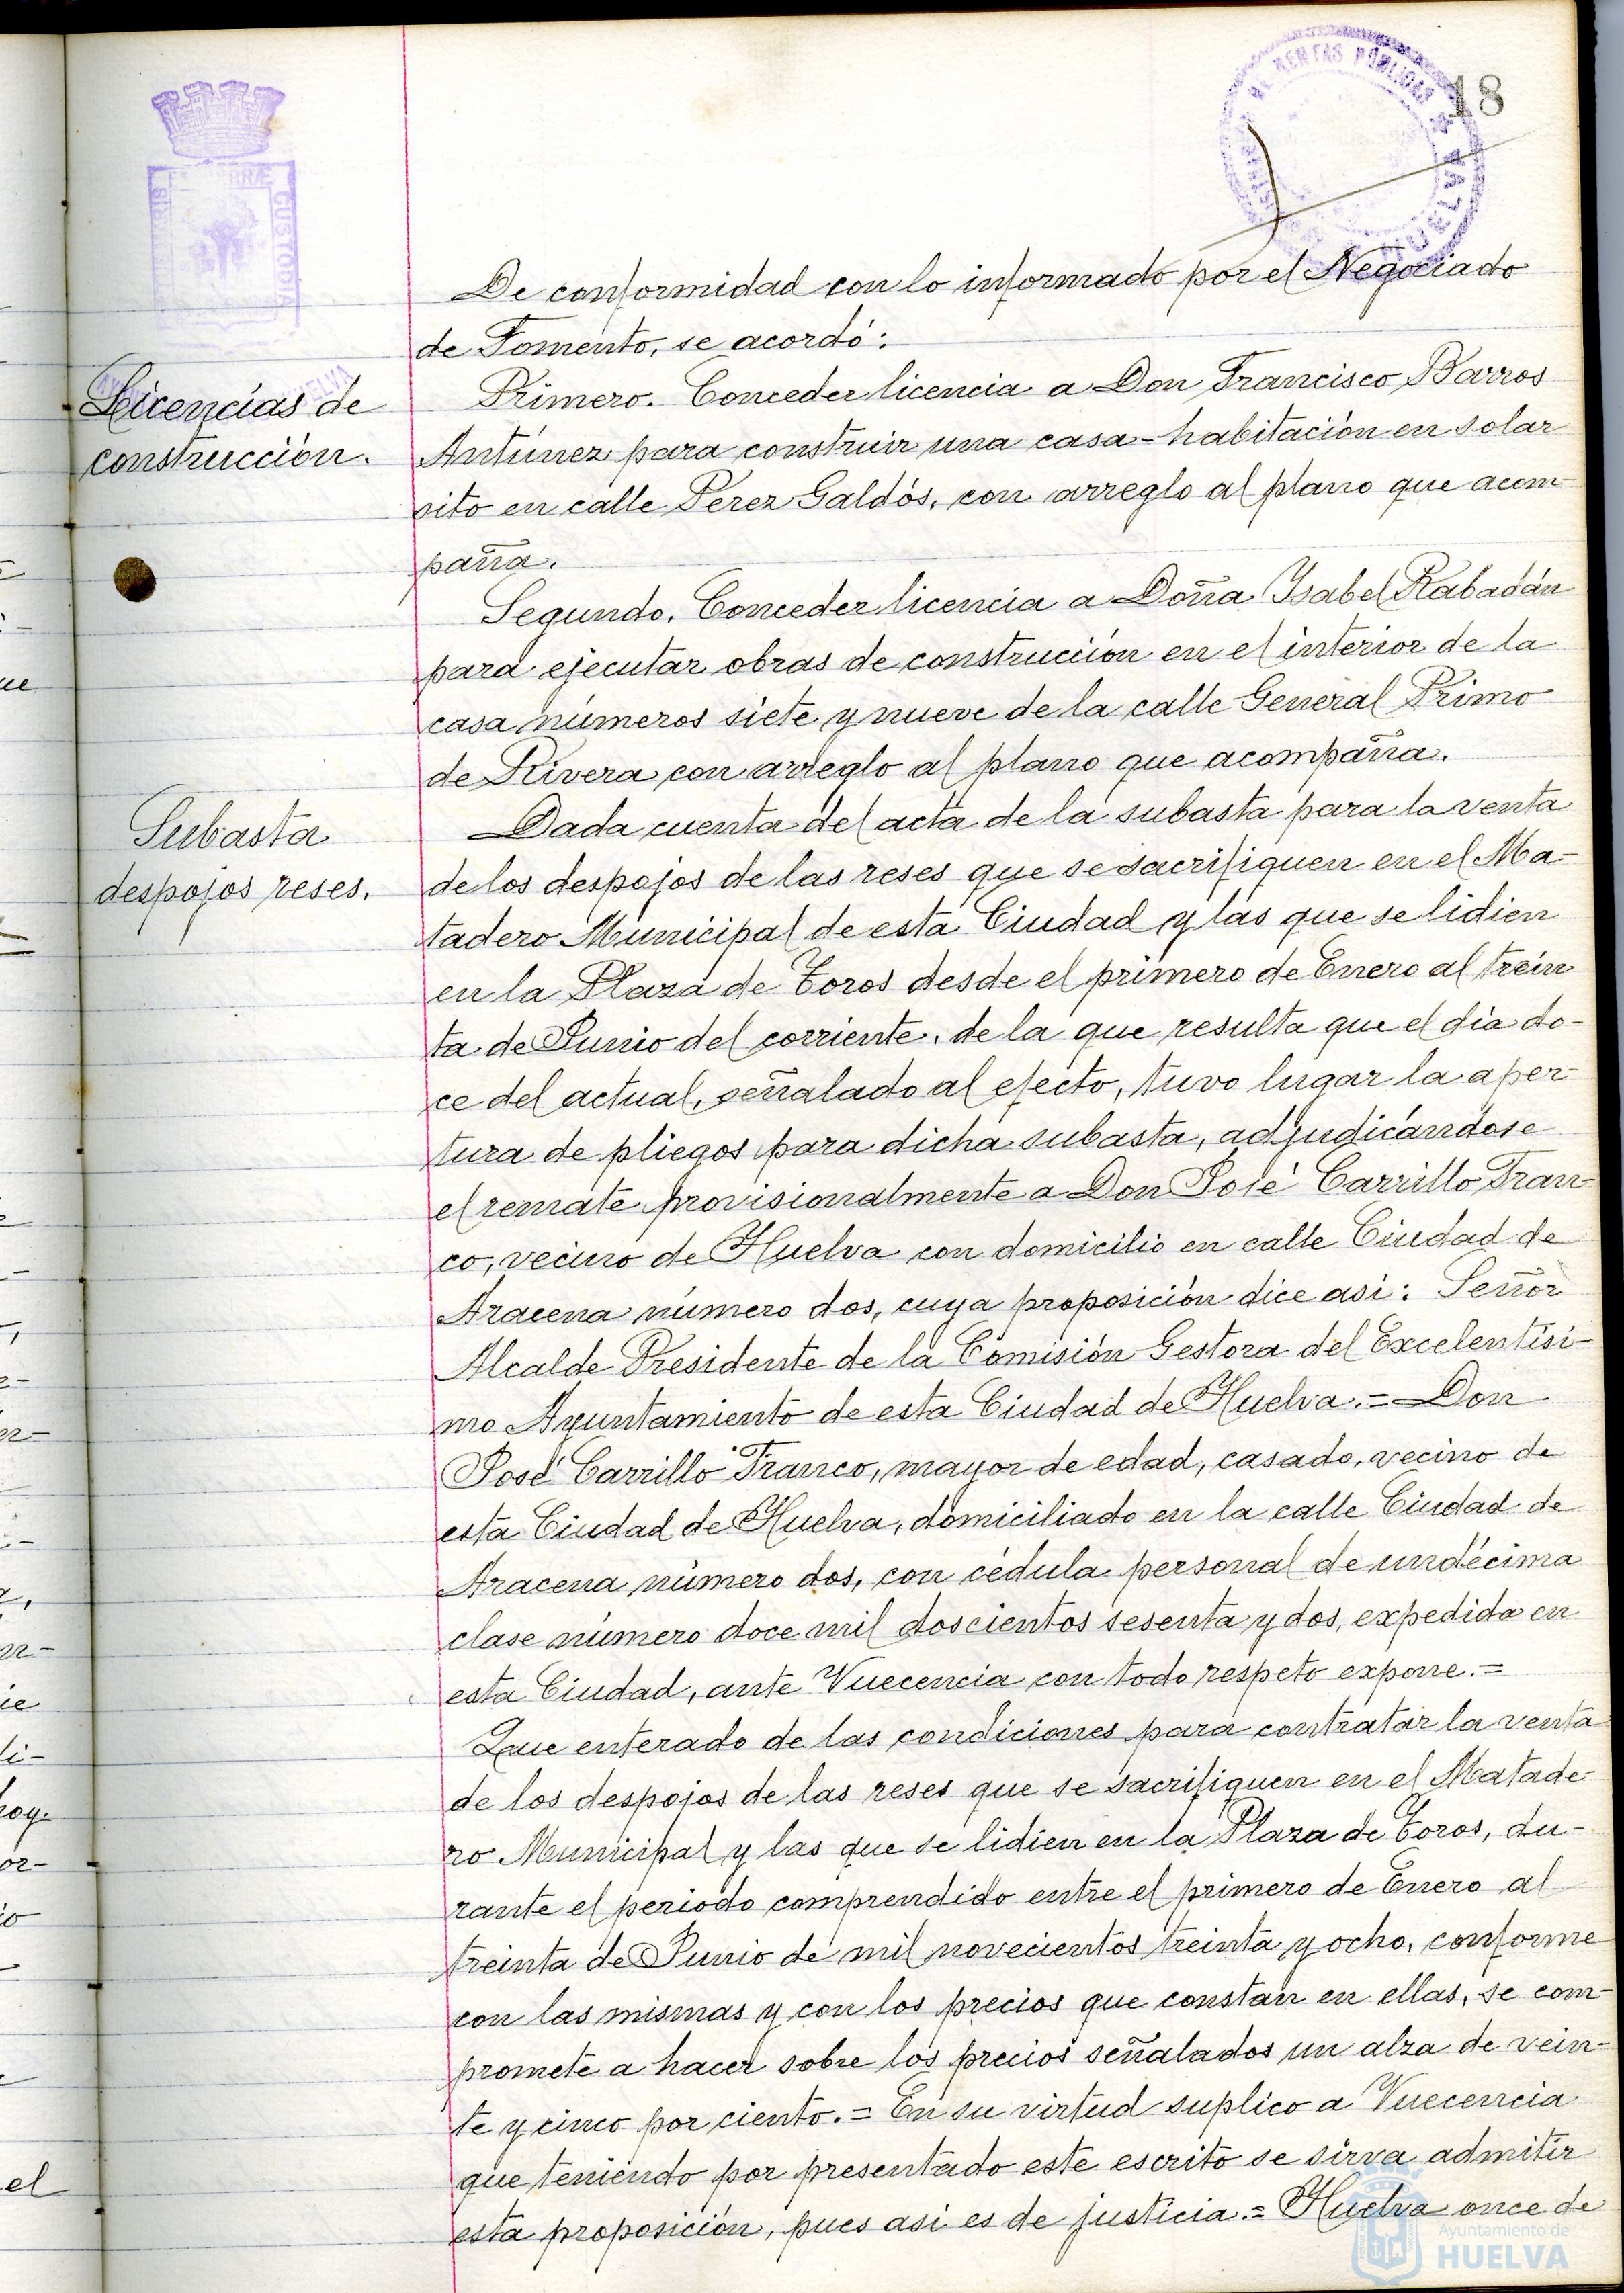 18
De conformidad con lo informado por el Negociado
de Fomento, se acordó:
Licencias de
construcción.
Primero. Conceder licencia a Don Francisco Barros
Antúnez para construir una casa-habitación en solar
sito en calle Perez Galdós, con arreglo al plano que acom-
paña.
Segundo. Conceder licencia a Doña Isabel Rabadán
para ejecutar obras de construcción en el interior de la
casa números siete y nueve de la calle General Primo
de Rivera con arreglo al plano que acompaña.
Subasta
despojos reses.
Dada cuenta del acta de la subasta para la venta
de los despojos de las reses que se sacrifiquen en el Ma-
tadero Municipal de esta Ciudad y las que se lidien
en la Plaza de Toros desde el primero de Enero al trein
ta de Junio del corriente, de la que resulta que el dia do-
ce del actual, señalado al efecto, tuvo lugar la aper-
tura de pliegos para dicha subasta, adjudicándose
el remate provisionalmente a Don José Carrillo Fran-
co, vecino de Huelva con domicilio en calle Ciudad de
Aracena número dos, cuya proposición dice asi: Señor
Alcalde Presidente de la Comisión Gestora del Excelentísi-
mo Ayuntamiento de esta Ciudad de Huelva.= Don
José Carrillo Franco, mayor de edad, casado, vecino de
esta Ciudad de Huelva, domiciliado en la calle Ciudad de
Aracena número dos, con cédula personal de undécima
clase número doce mil doscientos sesenta y dos, expedida en
esta Ciudad, ante Vuecencia con todo respeto expone.=
Que enterado de las condiciones para contratar la venta
de los despojos de las reses que se sacrifiquen en el Matade-
ro Municipal y las que se lidien en la Plaza de Toros, du-
rante el periodo comprendido entre el primero de Enero al
treinta de Junio de mil novecientos treinta y ocho, conforme
con las mismas y con los precios que constan en ellas, se com-
promete a hacer sobre los precios señalados un alza de vein-
te y cinco por ciento.= En su virtud suplico a Vuecencia
que teniendo por presentado este escrito se sirva admitir
esta proposición, pues asi es de justicia.= Huelva once de
Ayuntamiento de
HUELVA